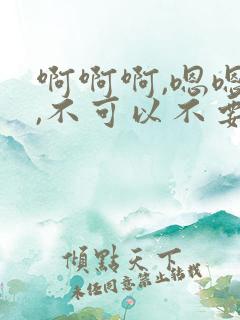 啊啊啊,嗯嗯
,不可以不要
傾點天下
未经同意禁止转载